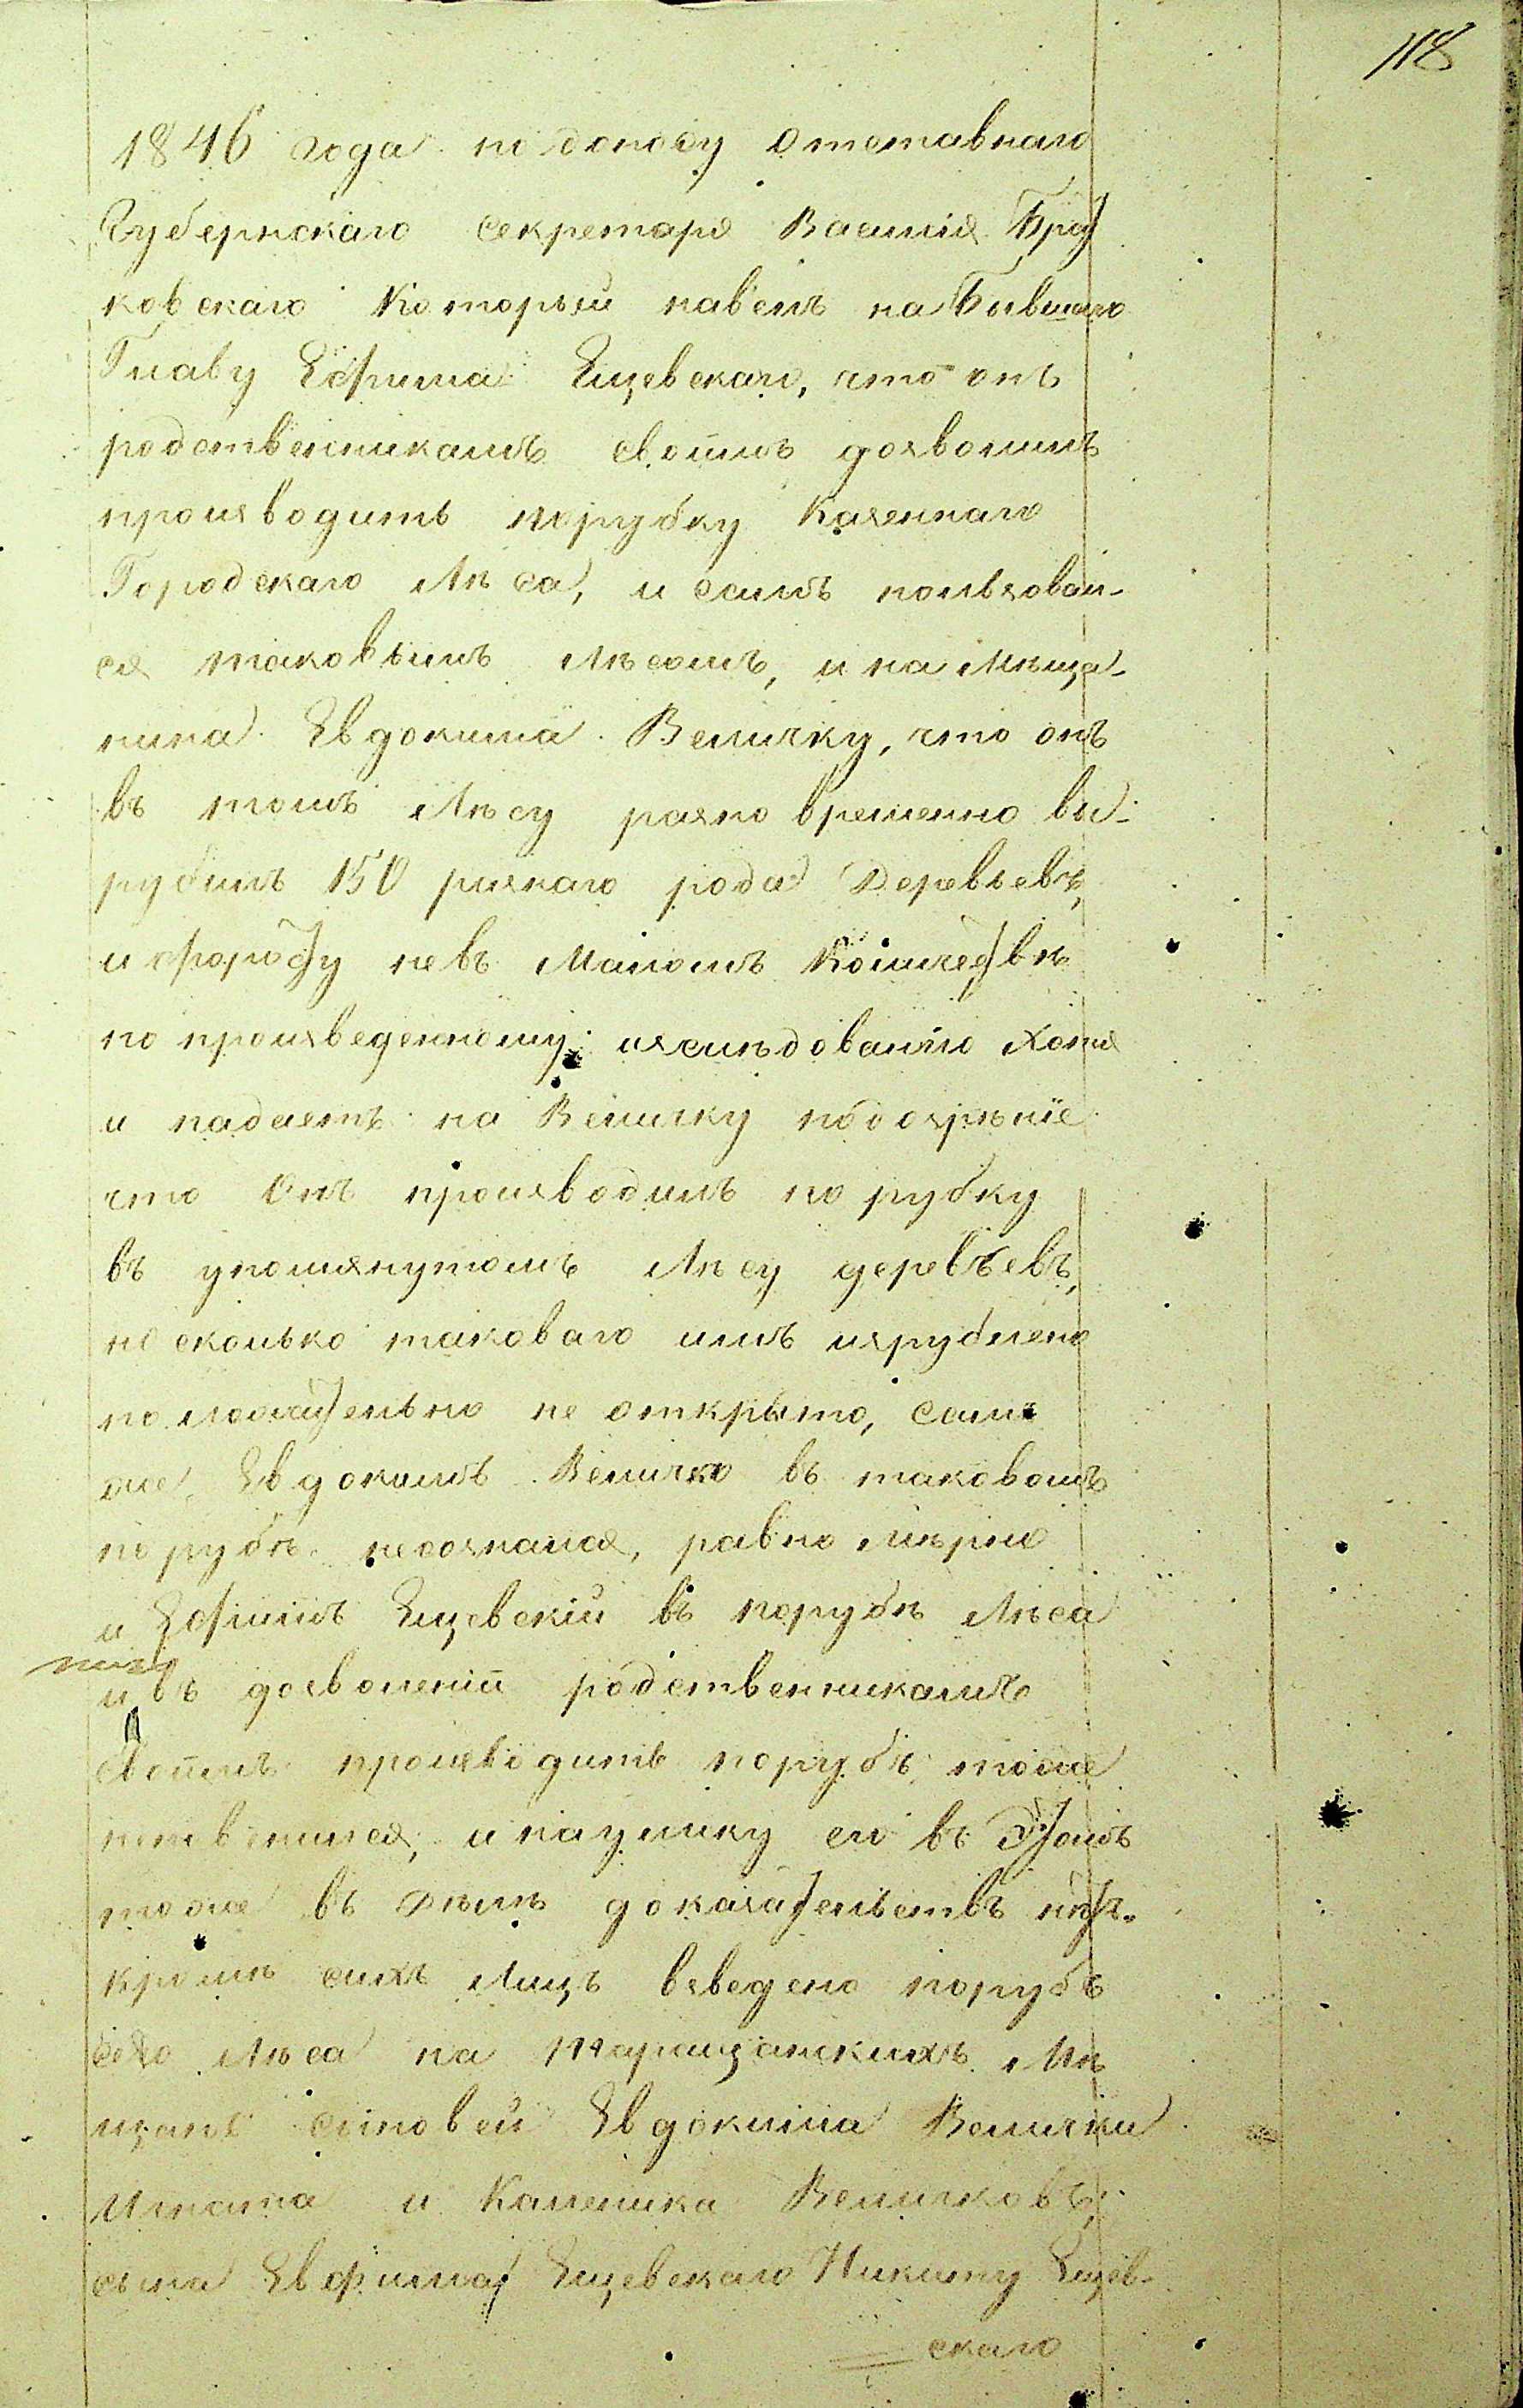 118
1846 года по доносу Отставнаго
Губернскаго секретаря Василія Брат
ковскаго который навелъ на Бывшаго
Главу Ефима Ещевскаго, что онъ
родственникамъ своимъ дозволилъ
производить порубку Казеннаго
Городскаго Лѣса, и самъ пользовал-
ся таковымъ Лѣсомъ, и на Мѣща-
нина Евдокима Величку, что онъ
въ томъ Лѣсу разно временно вы-
рубилъ 150 разнаго рода Деревьевъ,
и
невъ Маломъ Количествѣ
по произведенному изслѣдованію хотя
и падаетъ на Величку подозрѣніе
что Онъ производилъ по рубку
въ упомянутомъ Лѣсу деревъевъ,
но сколько таковаго имъ изрублено
положительно не открыто, самъ
же Евдокимъ Величко въ таковомъ
порубѣ несознался, равно мѣрно
и Ефимъ Ещевскій въ порубѣ Лѣса
и въ дозволеніи родственникамъ
своимъ производить порубъ тоже
и
его въ
тоже въ дѣлѣ доказательствъ нѣтъ.
кромѣ сихъ Лицъ взведено порубъ
сего Лѣса на Таращанскихъ Мѣ
щанъ сыновей Евдокима Велички
Игната и Каленика Величковъ,
сына Евфима Ещевскаго Никиту Ещев-
скаго